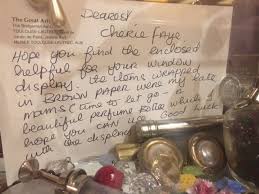 The Great Art
TOULOUSE-LAUTREC
MUSEE TOULOUSE-LAUTREC, ALBI
Dearest
Cherie Faye
Hope you find the enclosed
helpful for your window
display. The items wrapped
in BROWN PAPER were my late
mams (time to let go - a
beautiful perfume Bottle which I
hope you can use. Good Luck
with the display